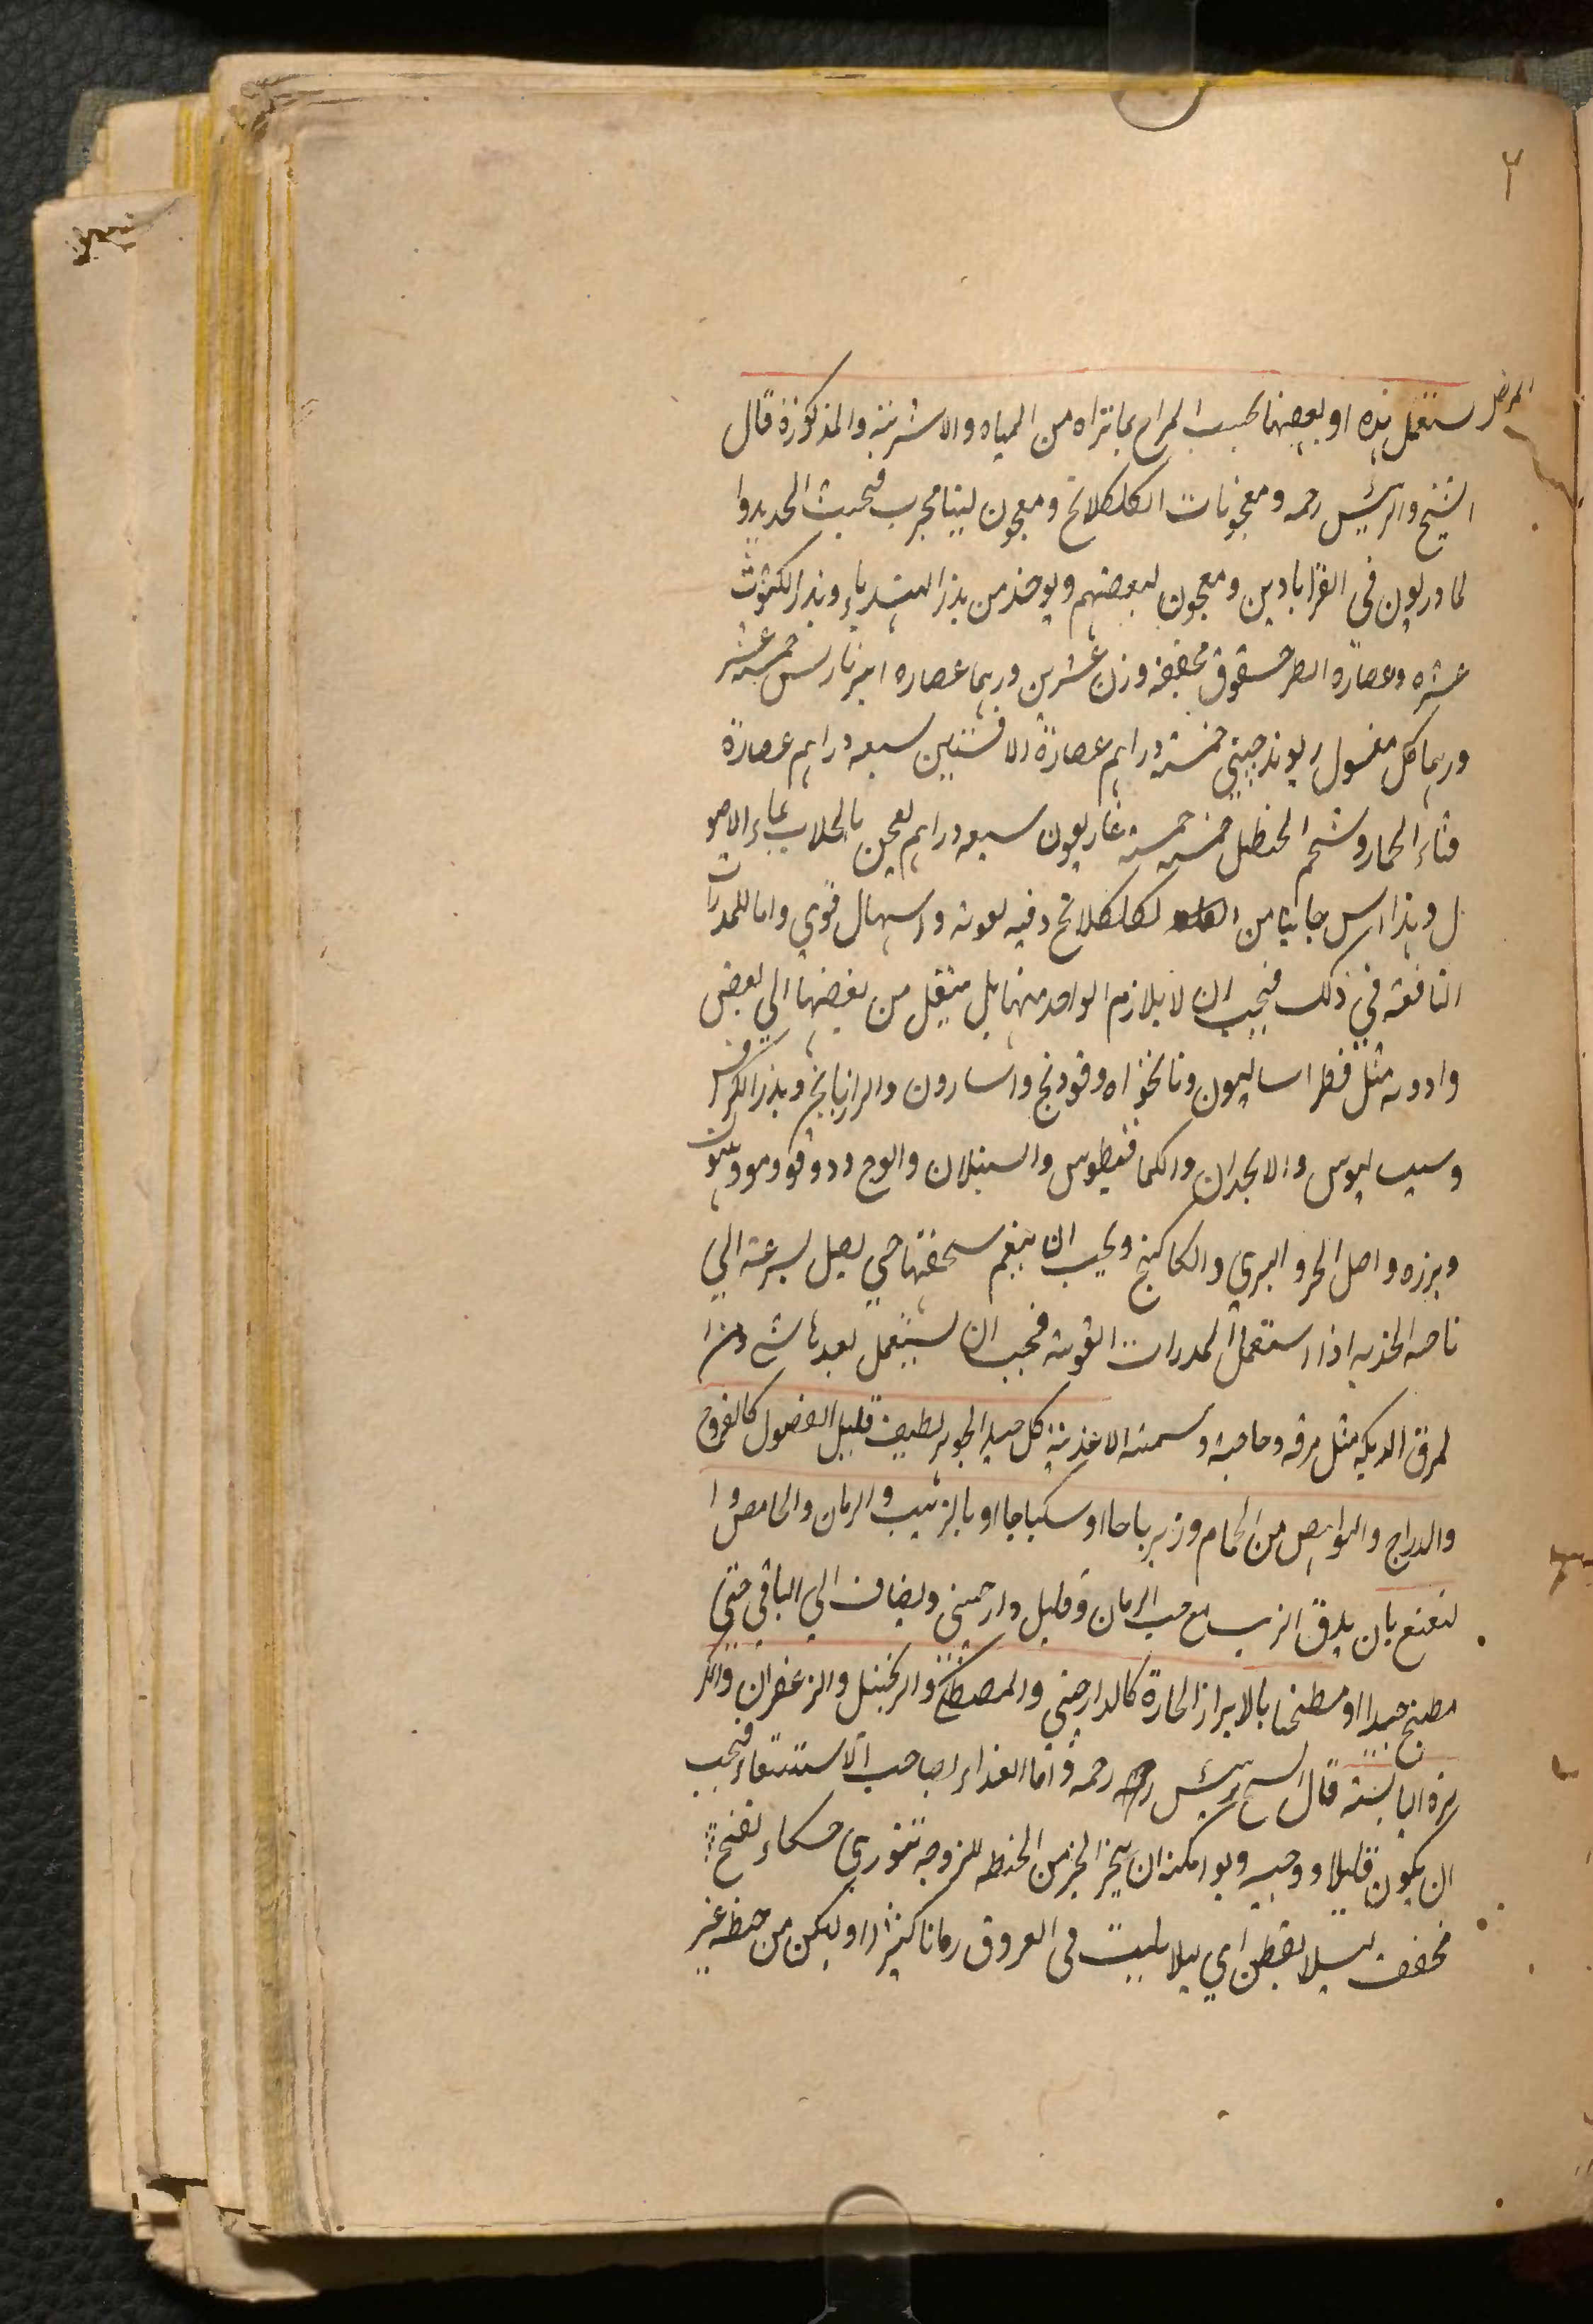 ٢
المرض
ستعمل هذه او بعضها بحسب المراح بما تراه من المياه والاشربة والمذكورة قال
الشيخ والرئيس رحمه ومعجونات الكلكلانج ومعجون لينا مجرب فحبث الحديدوا
لمادريون في القراباديين ومعجون لبعضهم ويوخذ من بذر الهندباء وبذر الكثوث
عشره وعصارة الطرخشقوق مجففة وزن عشرين درهما عصاره امبرباريس خمسه عشر
درهما كل مغسول ريوند جيني خمسة دراهم عصارة الافسنتين سبعه دراهم عصارة
قثاء الحمار وشحم الحنظل خمسه خمسه غاريقون سبعه دراهم يعجن بالجلاب بماء الاصو
ل وهذا اسر جانبا من الكلكلانج وفيه لعوته واسهال قوي واما للمدرات
النافعة في ذلك فيجب ان لا يلازم الواحد منها بل ينتقل من بعضها الي بعض
وادويه مثل فطراساليون ونانخواه وفودنج واسارون والرازيانج وبذر الكرفس
وسيساليوس والانجدان والكمافيطوس والسنبلان والوج ودوقو وموو هليون
وبرزه واصل الحرو البري والكاكنج ويجب ان ينعم سحقها حتي يصل بسرعة الي
ناحيه الحذبه اذا استعمل المدرات القويه فيجب ان يستعمل بعدها شي من ا
لمرق الديكه مثل مرقه دجاجه وسمنه الاغذية كل جيد الجوهر لطيف قليل الفضول كالفروج
والدراج والنواهض من الحمام وزيرباجا او سكباجا او بالزبيب والرمان والحامض وا
لنعنع بان يدق الزبيب مع حب الرمان وقليل دارجيني ويضاف الي الباقي حتي
مطبخ جيدا او مطنجنا بالابراز الحارة كالدارصني والمصطكي والزنجبيل والزعفران والكز
بزه اليابسة قال الشيخ رئيس رحمه واما الغذاء لصاحب الاستسقاء فيجب
ان يكون قليلا ووجبه ولو امكنه ان يخبز الخبز من الحنطه للزوجه تنوري حكاء نضج
مجفف ليلا يقطن اي ليلا يلبث في العروق رمانا كثيرا وليكن من حنطه غير